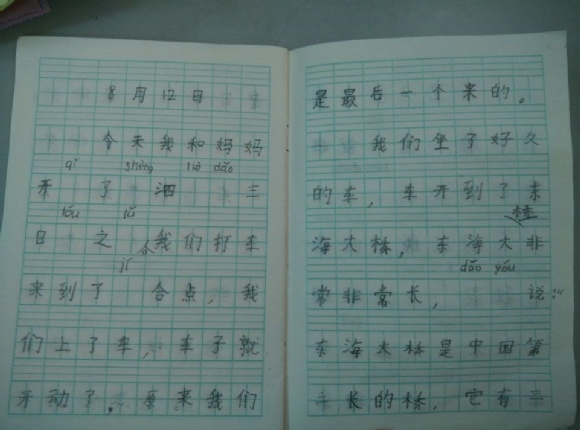 8月12日
今天我和妈妈
qǐ shèng liè dǎo
开了泗三
lǚ
日之我们打车
jí
来到了合点，我
们上了车，车子就
开动了。原来我们
是最后一个来的。
我们坐了好久
的车，车开到了东
桥
海大桥，东海大非
dǎo yóu
常非常长，说：“
东海大桥是中国第
长的桥，它有